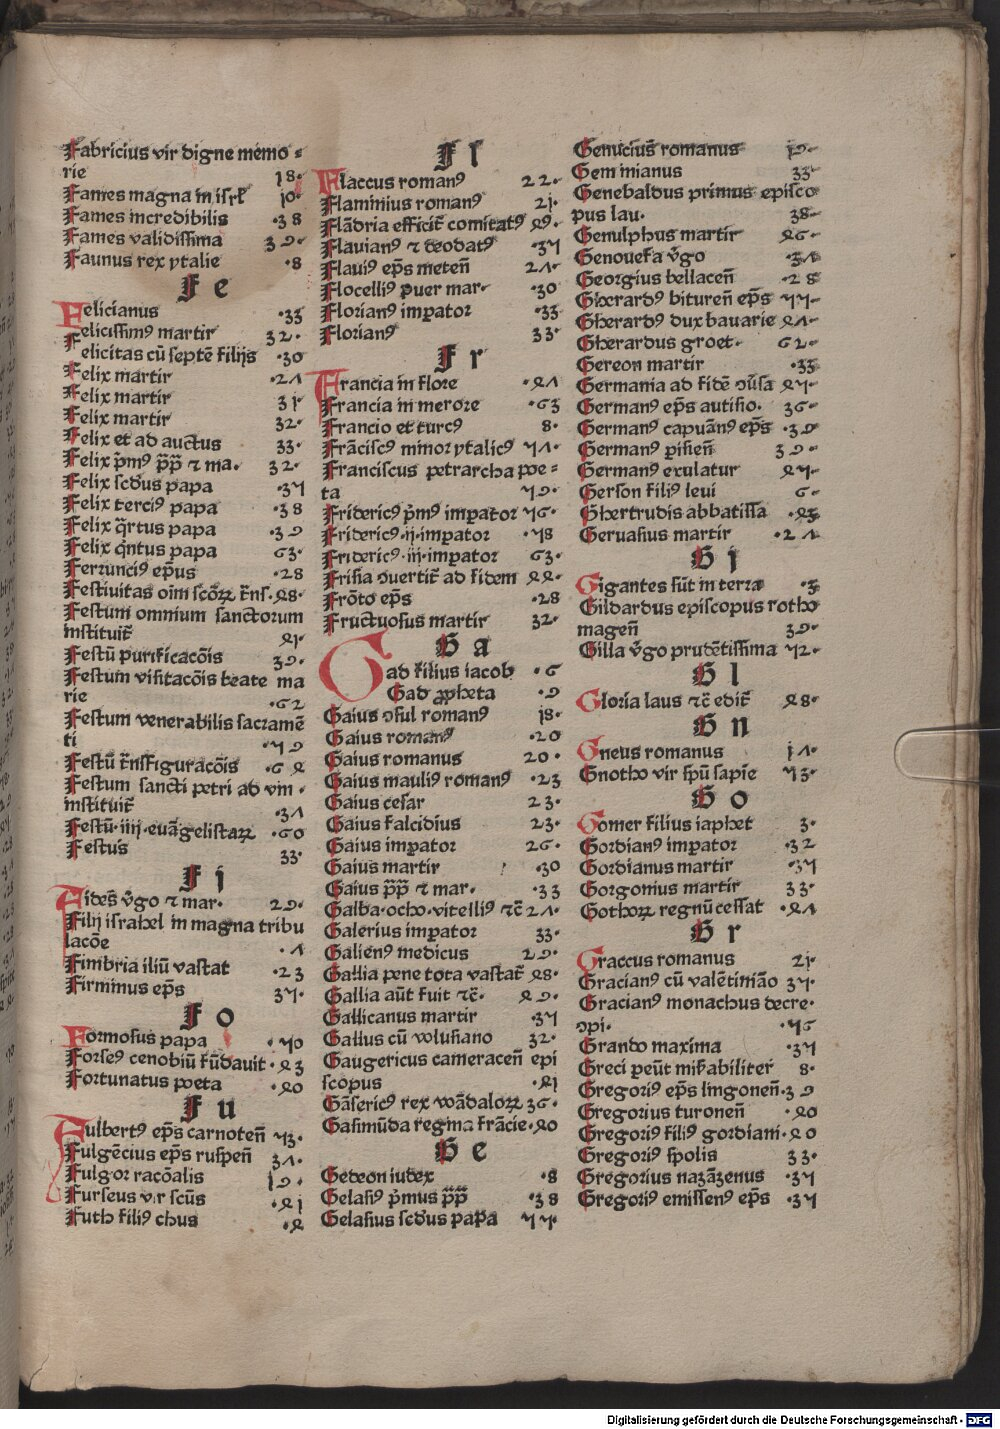 Fabricius vir digne memo⸗
rie 18·
Fames magna in isrl̄ 10·
Fames incredibilis ·38
Fames validissima 39·
Faunus rex ytalie ·8
F e
Felicianus ·33
Felicissimꝰ martir 32·
Felicitas cū septē filijs ·30
Felix martir ·27
Felix martir 31
Felix martir 32·
Felix et ad auctus 33·
Felix p̄mꝰ p̄p̄ ⁊ ma· 32·
Felix scd̄us papa ·37
Felix terciꝰ papa ·38
Felix q̄rtus papa ·39
Felix q̄ntus papa 63·
Ferrunciꝰ ep̄us ·28
Festiuitas oīm scōꝝ t̄ns·48·
Festum omnium sanctorum
instituit̄ 41·
Festū purificacōis 39·
Festum visitacōis beate ma
rie ·62
Festum venerabilis sacramē
ti ·59
Festū t̄nsfiguracōis ·64
Festum sancti petri ad vin·
instituit̄ ·37
Festū·iiij·euāgelistaꝝ ·60
Festus 33·
F j
Fides v̄go ⁊ mar· 29·
Filij israhel in magna tribu
lacōe ·7
Fimbria iliū vastat ·23
Firminus ep̄s 35·
F o
Formosus papa ·50
Forseꝰ cenobiū fūdauit·43
Fortunatus poeta ·40
F u
Fulbertꝰ ep̄s carnoten̄ 53·
Fulgēcius ep̄s ruspen̄ 37·
Fulgor racōalis 19·
Furseus vir scūs ·41
Futh filiꝰ chus ·4
F l
Flaccus romanꝰ 22·
Flaminius romanꝰ 21·
Flādria efficit̄ comitatꝰ 49·
Flauianꝰ ⁊ deodatꝰ ·35
Flauiꝰ ep̄s meten̄ 27·
Flocellꝰ puer mar· ·30
Florianꝰ imp̱ator ·33
Florianꝰ 33·
F r
Francia in flore ·47
Francia in merore ·63
Francio et turcꝰ 8·
Frāciscꝰ minor ytalicꝰ 57·
Franciscus petrarcha poe⸗
ta 59·
Fridericꝰ p̄mꝰ imp̱ator 56·
Fridericꝰ·ij·imp̱ator ·58
Fridericꝰ·iij·imp̱ator 63·
Frisia ↄuertit̄ ad fidem 44·
Frōto ep̄s ·28
Fructuosus martir 32·
G a
Gad filius iacob ·6
Gad ꝓpheta ·9
Gaius ↄsul romanꝰ 18·
Gaius romanꝰ ·20
Gaius romanus 20·
Gaius mauliꝰ romanꝰ ·23
Gaius cesar 23·
Gaius falcidius 23·
Gaius imp̱ator 26·
Gaius martir ·30
Gaius p̄p̄ ⁊ mar· ·33
Galba·octo·vitelliꝰ ⁊c̄ 27·
Galerius imp̱ator 33·
Galienꝰ medicus 29·
Gallia pene tota vastat̄ 48·
Gallia aūt fuit ⁊c̄· 49·
Gallicanus martir ·35
Gallus cū volusiano 32·
Gaugericus cameracen̄ epi
scopus ·41
Gāsericꝰ rex wādaloꝝ 36·
Gasimūda regina frācie·40
G e
Gedeon iudex ·8
Gelasiꝰ p̄mus p̄p̄ ·38
Gelasius scd̄us papa 55·
Genucius̄ romanus 19·
Geminianus 33·
Genebaldus primus episco
pus lau· 38·
Genulphus martir 46·
Genouefa v̄go ·37
Georgius bellacen̄ ·28
Gherardꝰ bituren̄ ep̄s 55·
Gherardꝰ dux bauarie 47·
Gherardus groet· 62·
Gereon martir ·33
Germania ad fidē ↄu̇sa 45·
Germanꝰ ep̄s autisio· 36·
Germanꝰ capuānꝰ ep̄s ·39
Germanꝰ p̱isien̄ 39·
Germanꝰ exulatur 45·
Gerson filiꝰ leui 6·
Ghertrudis abbatissa ·43
Geruasius martir ·27
G j
Gigantes sūt in terra ·3
Gildardus episcopus rotho
magen̄ 39·
Gilla v̄go prudētissima 52·
G l
Gloria laus ⁊c̄ edit̄ 48·
G n
Gneus romanus 17·
Gnotho vir spū sapīe 53·
G o
Gomer filius iaphet 3·
Gordianꝰ imp̱ator ·32
Gordianus martir ·35
Gorgonius martir 33·
Gothoꝝ regnū cessat ·47
G r
Graccus romanus 21·
Gracianꝰ cū valētiniāo 35·
Gracianꝰ monachus decre·
ↄpi· ·56
Grando maxima ·37
Greci p̱eūt mirabiliter 8·
Gregoriꝰ ep̄s lingonen̄·39
Gregorius turonen̄ ·40
Gregoriꝰ filiꝰ gordiani·40
Gregoriꝰ spolis 33·
Gregorius nazāzenus ·35
Gregoriꝰ emissenꝰ ep̄s ·35
Digitalisierung gefördert durch die Deutsche Forschungsgemeinschaft - DFG